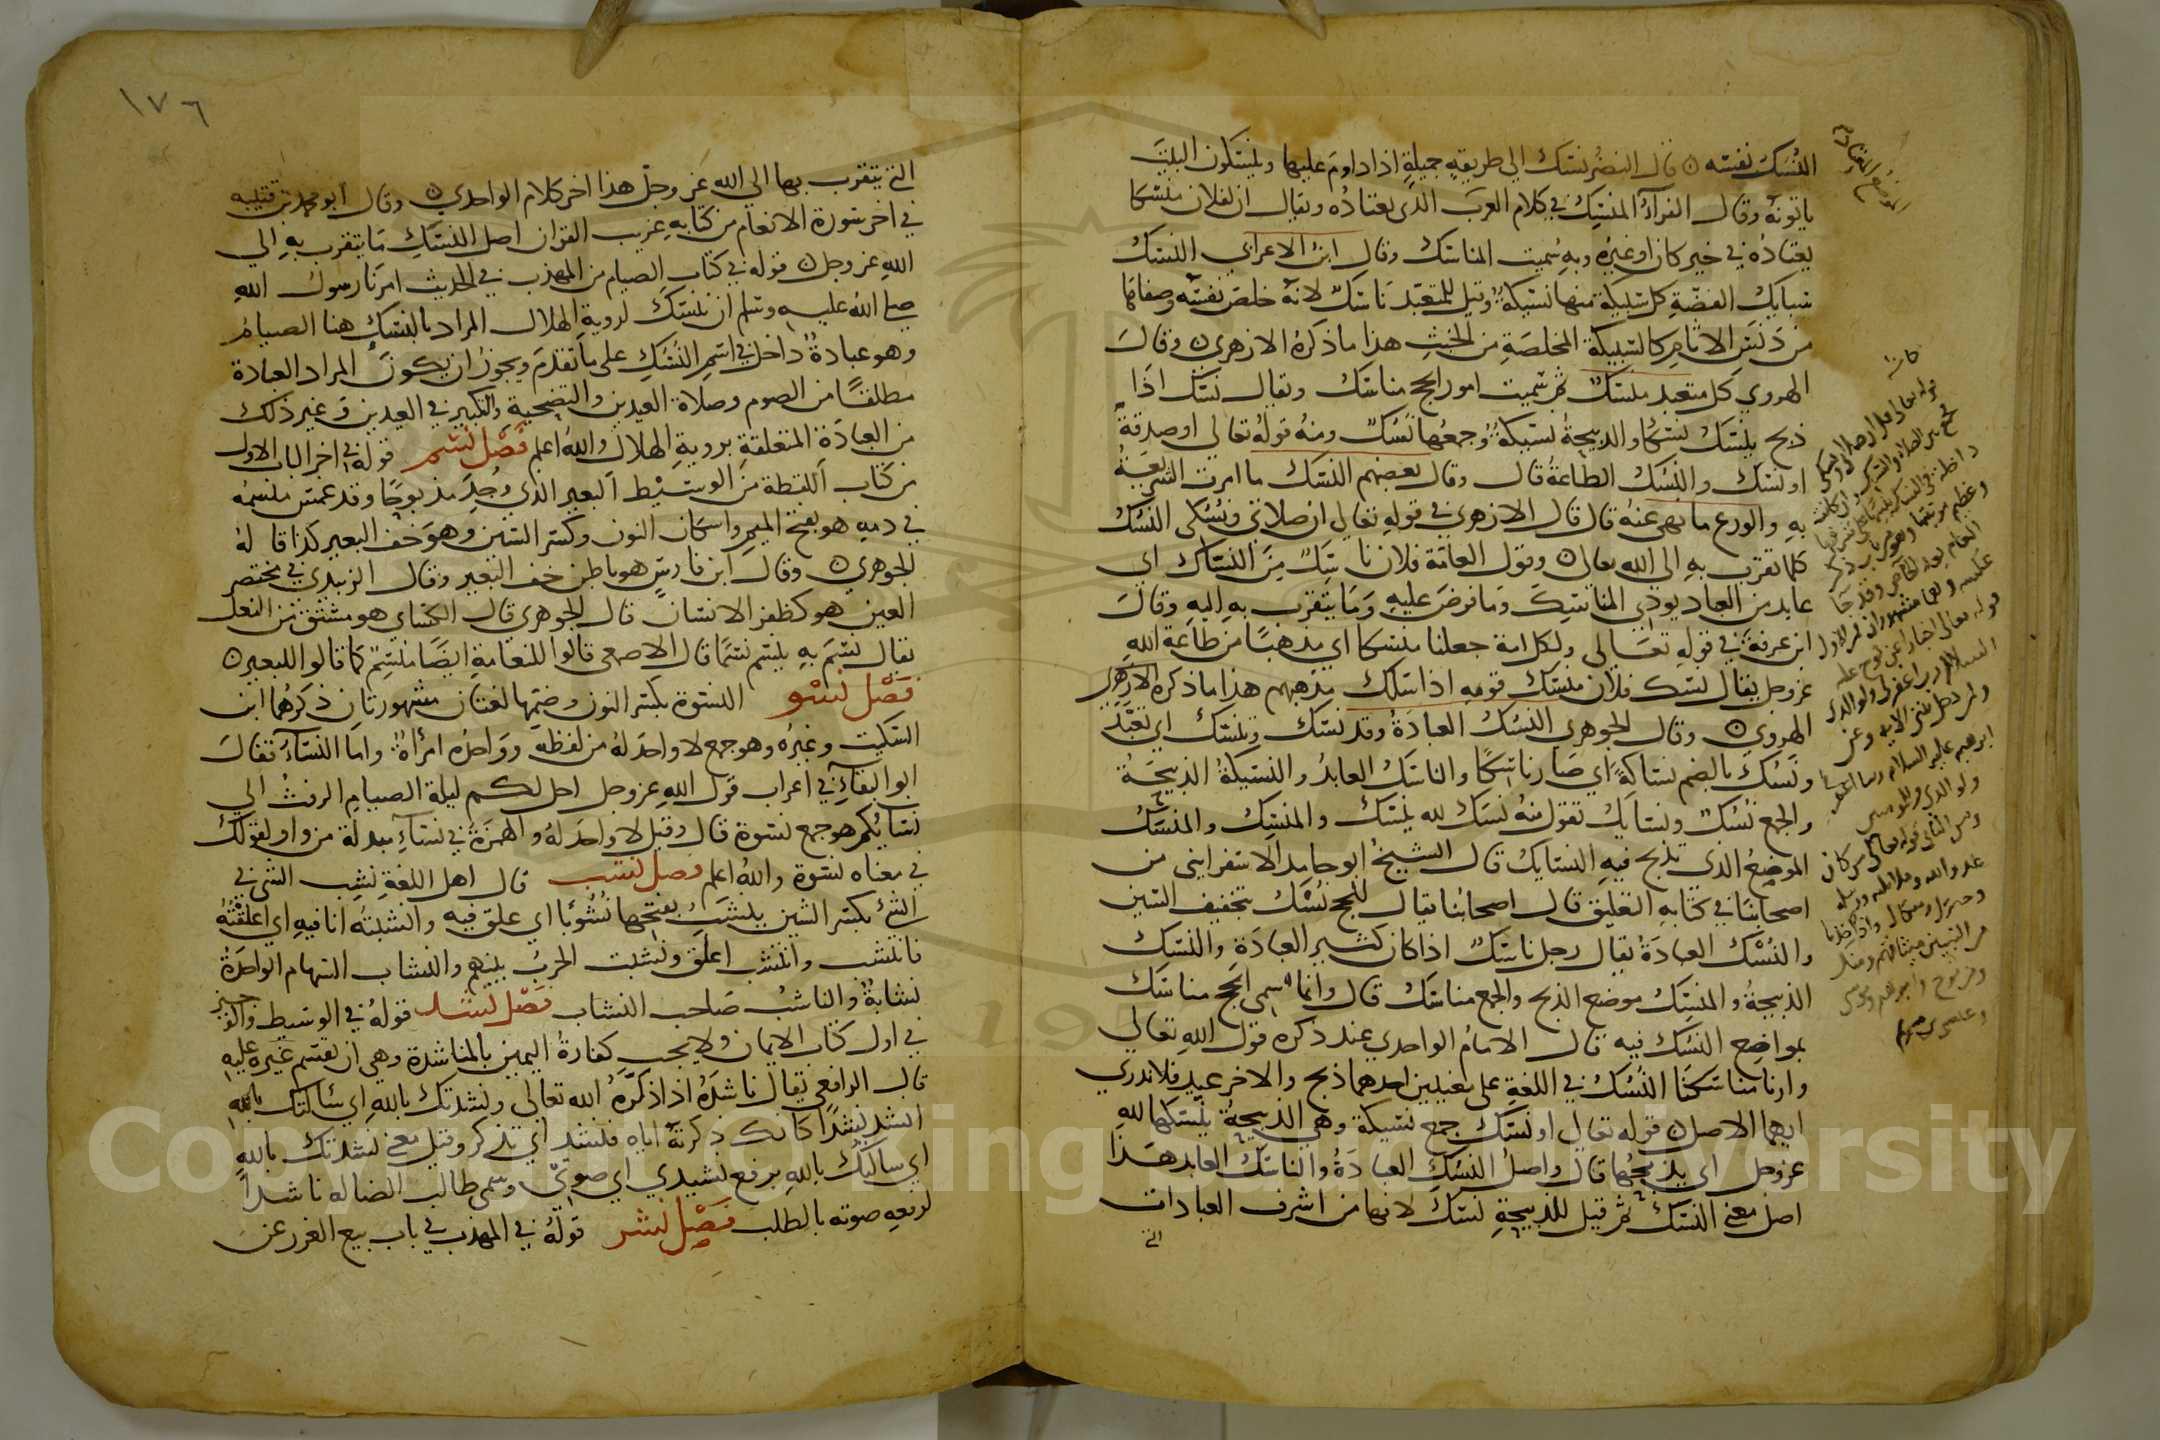 النسك نفسه ۞ قال النضر نسك الى طريقةٍ جميلةٍ اذا داوم عليها وينسكون البيت
ياتونه وقال الفراء المنسك في كلام العرب الذى يعتاده ويقال ان لفلان منسكا
يعتاده في خير كان او غيره وبه سميت المناسك وقال ابن الاعرابي النسك
سبايك الفضة كل سبيكة منها نسيكة وقيل للمتعبد ناسك لانه خلص نفسه وصفاها
من دنس الاثام كالسبيكة المخلصة من الخبث هذا ما ذكره الازهري ۞ وقال
الهروي كل متعبد منسك ثم سميت امور الحج مناسك ويقال نسك اذا
ذبح ينسك نسكا والذبيحة نسيكة وجمعها نسك ومنه قوله تعالى او صدقة
او نسك والنسك الطاعة قال وقال بعضهم النسك ما امرت الشريعة
به والورع ما نهى عنه قال قال الازهري في قوله تعالى ان صلاتي ونسكى النسك
كلما تقرب به الى الله تعالى ۞ وقول العامة فلان ناسك من النساك اي
عابد من العباد يودي المناسك وما فرض عليه وما يتقرب به اليه وقال
ابن عرفة في قوله تعالى ولكل امة جعلنا منسكا اي مذهبا من طاعة الله
عز وجل يقال نسك فلان منسك قومه اذا سلك مذهبهم هذا ما ذكره الازهري
الهروي ۞ وقال الجوهري النسك العبادة وقد نسك وتنسك اي تعبد
ونسك بالضم نساكة اي صار ناسكا والناسك العابد والنسيكة الذبيحة
والجمع نسك ونسايك تقول منه نسك لله ينسك والمنسك والمنسك
الموضع الذى تذبح فيه النسايك قال الشيخ ابو حامد الاسفرايني من
اصحابنا في كتابه التعليق قال اصحابنا يقال للحج نسك بتخفيف السين
والنسك العبادة يقال رجل ناسك اذا كان كثير العبادة والنسك
الذبيحة والمنسك موضع الذبح والجمع مناسك قال وانما سمى الحج مناسك
بمواضع النسك فيه قال الامام الواحدي عند ذكره قول الله تعالى
وارنا مناسكنا النسك في اللغة على معنيين احدهما ذبح والاخر عبد فلا ندري
ايهما الاصل ۞ قوله تعالى او نسك جمع نسيكة وهي الذبيحة ينسكها لله
عز وجل اي يذبحها قال واصل النسك العبادة والناسك العابد هذا
اصل معنى النسك ثم قيل للذبيحة نسك لانها من اشرف العبادات
التى
١٧٦
التى يتقرب بها الى الله عز وجل هذا اخر كلام الواحدي ۞ وقال ابو محمد بن قتيبه
في اخر سورة الانعام من كتابه غريب القران اصل النسك ما يتقرب به الى
الله عز وجل ۞ قوله في كتاب الصيام من المهذب في الحديث امرنا رسول الله
صلى الله عليه وسلم ان ننسك لروية الهلال المراد بالنسك هنا الصيام
وهو عبادة داخل في اسم النسك على ما تقدم ويجوز ان يكون المراد العبادة
مطلقا من الصوم وصلاة العيدين والتضحية والتكبير في العيدين وغير ذلك
من العبادة المتعلقة بروية الهلال والله اعلم فصل نسم قوله في اخر الباب الاول
من كتاب اللقطة من الوسيط البعير الذي وجد مذبوحا وقد غمس منسمه
في دمه هو بفتح الميم واسكان النون وكسر السين وهو خف البعير كذا قاله
الجوهري ۞ وقال ابن فارس هو باطن خف البعير وقال الزبيدي في مختصر
العين هو كظفر الانسان قال الجوهري قال الكساي هو مشتق من الفعل
يقال نسم به ينسم نسما قال الاصمعى قالوا للنعامة ايضا منسم كما قالوا للبعير ۞
فصل نسو النسوة بكسر النون وضمها لغتان مشهورتان ذكرهما ابن
السكيت وغيره وهو جمع لا واحد له من لفظه وواحده امرأة واما النساء فقال
ابو البقاء في اعراب قول الله عز وجل احل لكم ليلة الصيام الرفث الى
نسايكم هو جمع نسوة قال وقيل لا واحد له والهمزة في نساء مبدلة من واو لقولك
في معناه نسوة والله اعلم فصل نشب قال اهل اللغة نشب الشى في
الشئ بكسر الشين ينشب بفتحها نشوبا اي علق فيه وانشبته انا فيه اي اعلقته
فانتشب وانشب اعلق ونشبت الحرب بينهم والنشاب السهام الواحدة
نشابة والناشب صاحب النشاب فصل نشد قوله في الوسيط والوجيز
في اول كتاب الايمان ولا يجب كفارة اليمين بالمناشدة وهي ان يقسم غيره عليه
قال الرافعي يقال ناشده اذا ذكره الله تعالى ونشدتك بالله اي سالتك بالله
انشد نشدا كانك ذكرته اياه فنشد اي تذكر وقيل معنى نشدتك بالله
اي سالتك بالله برفع نشيدي اي صوتي وسمى طالب الضالة ناشدا
لرفعه صوته بالطلب فصل نشر قوله في المهذب في باب بيع الغرر عن